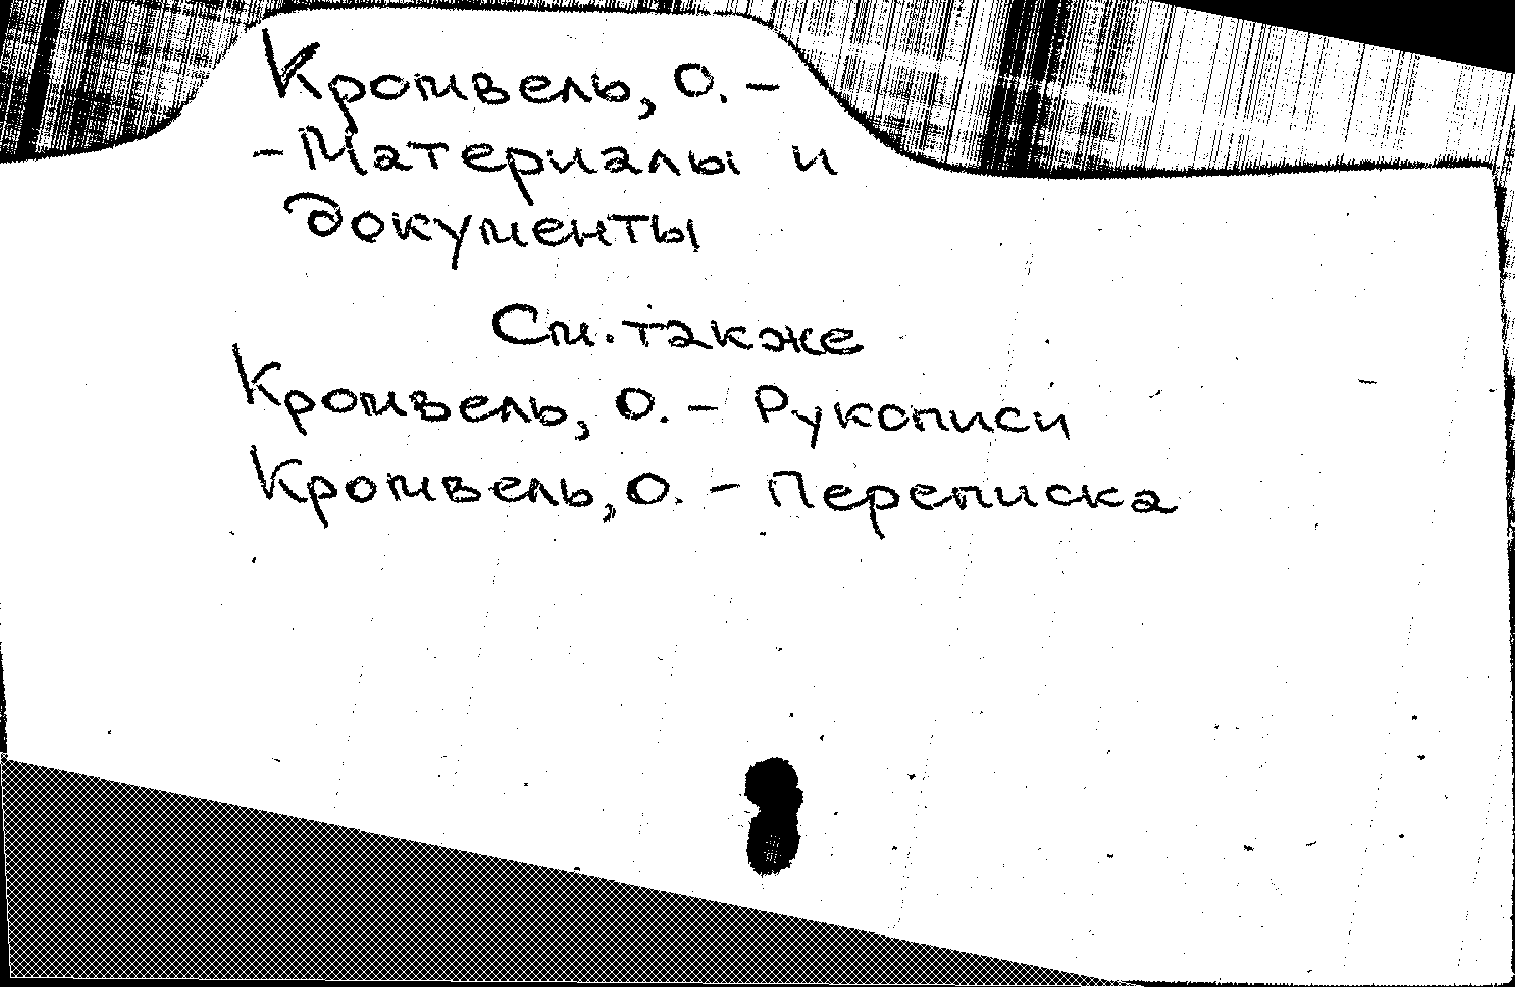 Кромвель, О. -
- Материалы и
документы
См. также
Кромвель, О. - Рукописи
Кромвель, О. - Переписка